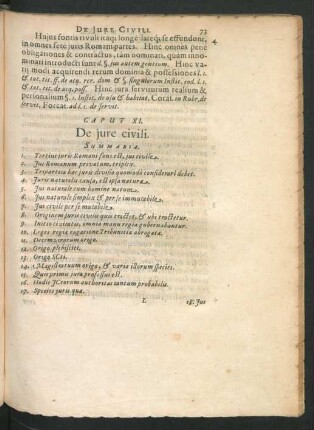 DE JURE CIVILI. 73
Hujus fontis rivuli itaq; longè lateq; se effundent, 4.
in omnes ferè juris Romani partes. Hinc omnes penè
obligationes & contractus, tàm nominati, quàm inno-
minati introducti sunt. d. §. jus autem gentium. Hinc va-
rij modi acquirendi rerum dominia & possessiones. l. 1.
& tot. tit. ff. de acq. rer. dom. & §. singulorum Instit. eod. l. 1.
& tot. tit. de acq. poss. Hinc jura servitutum realium &
personalium §. 1. Instit. de usu & habitat.
CAPUT XI.
De jure civili.
SUMMARIA.
1. Tertius juris Romani fons est, jus civile.
2. Jus Romanum privatum, triplex.
3. Tripartita hac juris divisio quomodo considerari debet.
4. Juris naturalis causa, est ipsa natura.
5. Jus naturale cum homine natum.
6. Jus naturale simplex & per se immutabile.
7. Jus civile per se mutabile.
8. Originem juris civilis qui tractet, & ubi tractetur.
9. Initio civitatis, omnia manu regia gubernabantur.
10. Leges regiæ rogatione Tribunitia abrogatæ.
11. Decemvirorum origo.
12. Origo plebisciti.
13. Origo SCti.
14. Magistratuum origo, & varia illorum species.
15. Quis primus juris professus est.
16. Hodie JCtorum authoritas tantum probabilis.
17. Species juris quæ.
L 18. Jus